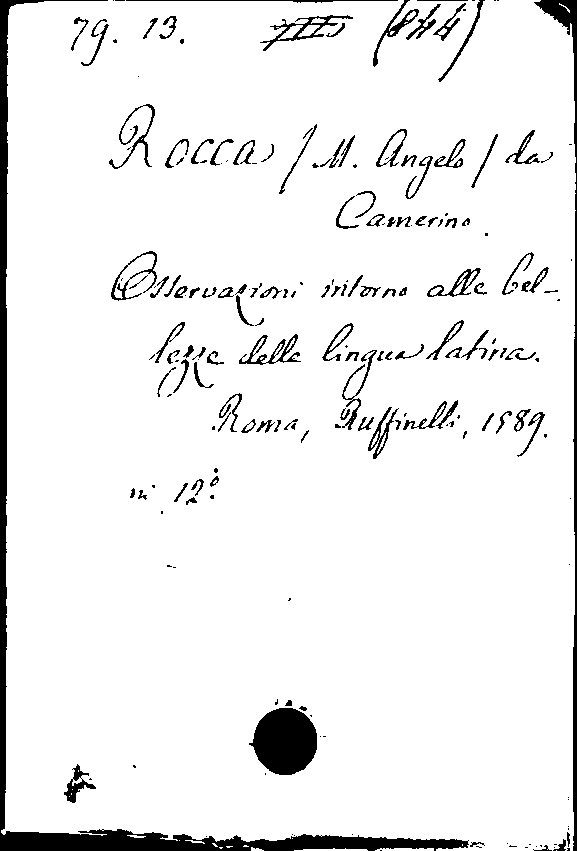 79. 13. (844)
Rocca / M. Angelo / da
Camerino.
Osservazioni intorno alle bel-
lezze della lingua latina.
Roma, Ruffinelli, 1589.
in 12º